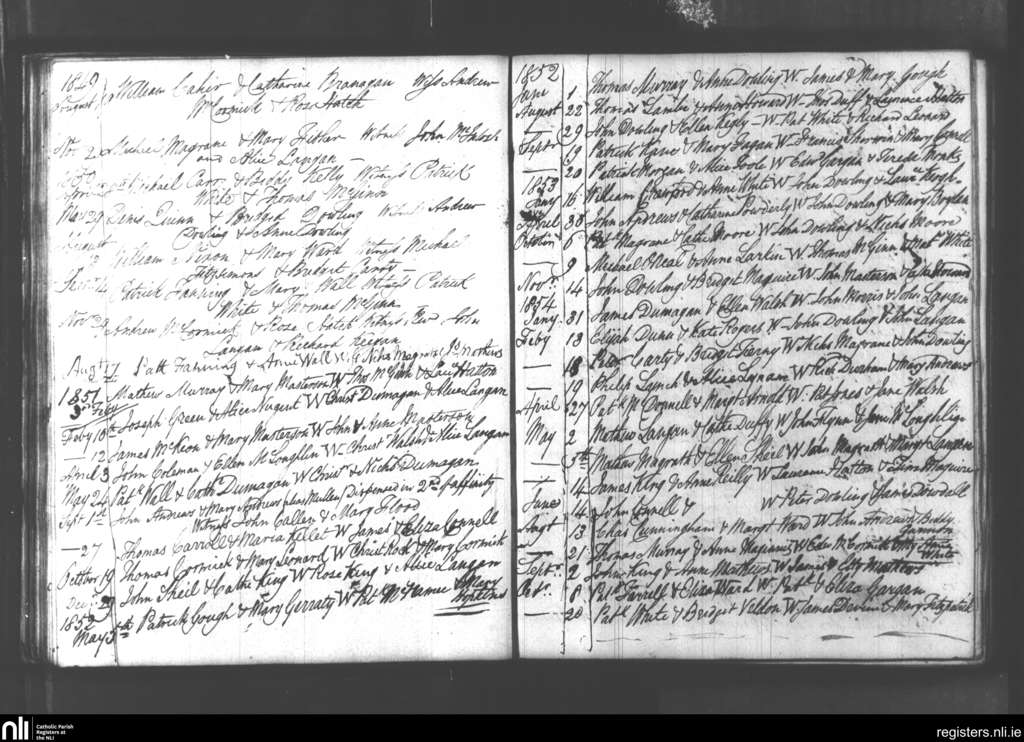 1849 William Cahir & Catharine Branagan Wss Andrew
August McCormick & Rose Hatch
Nov 2 Michael Magrane & Mary Fisher John McIntosh
and Alice Langan
1850 Michael Carr & Biddy Kelly Witnss Patrick
White & Thomas McGinn
May 29 Denis Quinn & Bridged Dowling Andrew
Dowling & Anne Dowling
August William Nixon & Mary Ward Witnss Michael
Fitzsimons & Bridget
Patrick Fanning & Mary Wall Witnss Patrick
White & Thomas McGinn
Nov 29 Andrew McCormick & Rose Hatch Witnss Rev John
Langan & Richard Keegan
Augt 17 Patt Fanning & Anne Wall W Nichs Magrane
1851 Mathew Murray & Mary Masterson W Thos McGinn & Laur Hatton
3rd Feby
Feby 18th Joseph Green & Alice Nugent W Christ Dumagan & Alice Langan
— 12 James McKeon & Mary Masterson W John & Anne Masterson
April 3 John Coleman & Ellen McLoughlen W Christ Walsh & Alice Langan
May 24 Patk Wall & Cath Dumagan W Christ & Nichs Dumagan
Sept 1st John Andrews & Mary Andrews (alias Mullen) Dispensed in 2nd of affinity
Witness John Callen & Mary Flood
— 27 Thomas Carroll & Maria Kellet W James & Eliza Connell
October 19 Thomas Cormick & Mary Leonard W Christ Rock & Mary Cormick
Decr 29 John Sheil & Cathe King W Rose King & Alice Langan
1852
May 5th Patrick Gough & Mary Gerraty W Pat McNamee & Mary Hopkins
1852
June 1 Thomas Murray & Anne Dowling W James & Mary Gough
August 22 Thomas Lambe & Anne Howard W Thos Duffy & Laurence Hatton
— 29 John Dowling & Ellen Kegly W Pat White & Richard Leonard
Septr 19 Patrick Kane & Mary Fagan W Francis Sherwin & Mary Connell
— 20 Patrick Morgan & Alice Poole W Edw Gargan & Teresa Monks
1853
Jany 16 William Crawford & Anne White W John Dowling & Laurce Keogh
April 30 John Andrews & Catharine Powderly W John Dowling & Mary Boylan
October 6 Pat Magrane & Cathe Moore W John Dowling & Nichs Moore
— 9 Michael ONeal & Anne Larkin W Thomas McGinn & Mat White
Novr 14 John Dowling & Bridget Maguire W John Masterson & Cathe Howard
1854
Jany 31 James Dumagan & Ellen Walsh W John Morris & John Langan
Feby 13 Elijah Dunn & Kate Rogers W John Dowling & John Langan
— 18 Peter Carty & Bridget Tierny W Nichs Magrane & John Dowling
— 19 Philip Lynch & Alice Lynam W Rich Durham & Mary Andrews
April 27 Patk McDonnell & Margt Arnold W Pat Jones & Jane Walsh
May 2 Mathew Langan & Cathe Duffy W John Flynn & Jane McLoughlin
— 5th Mathew Magrath & Ellen Sheil W John Magrath & Mary Langan
— 14 James King & Anne Reilly W Laurence Hatton & Anne Maguire
June 14 John Connell & W Peter Dowling & James Dowdall
Augt 13 Chas Cunningham & Margt Ward W John Andrews & Biddy Connor
— 21 Thomas Murray & Anne Maginnis W Edw McCormick & Mary Anne White
Septr 2 John King & Anne Mathews W James & Cathe Mathews
Octr 8 Patk Farrell & Eliza Ward W Patk & Eliza Gargan
— 20 Patk White & Bridget Veldon W James Devine & Mary Fitzpatrick
nli
Catholic Parish
Registers at
the NLI
registers.nli.ie